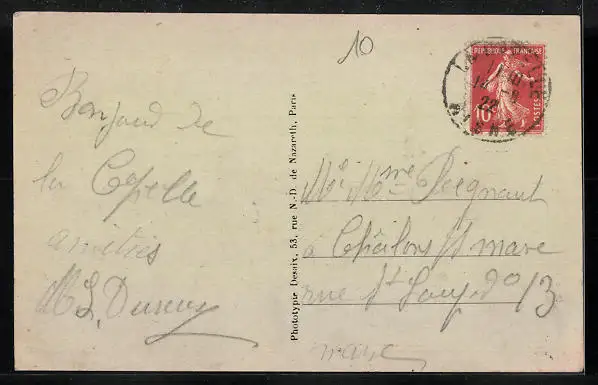 10
Bonjour de
la Capelle
amitiés
Phototypie Desaix, 53, rue N.-D. de Nazareth, Paris
REPUBLIQUE FRANÇAISE
10
POSTES
22
AISNE
Mr Mme Poignant
à Châlons s/ marne
rue St
marne